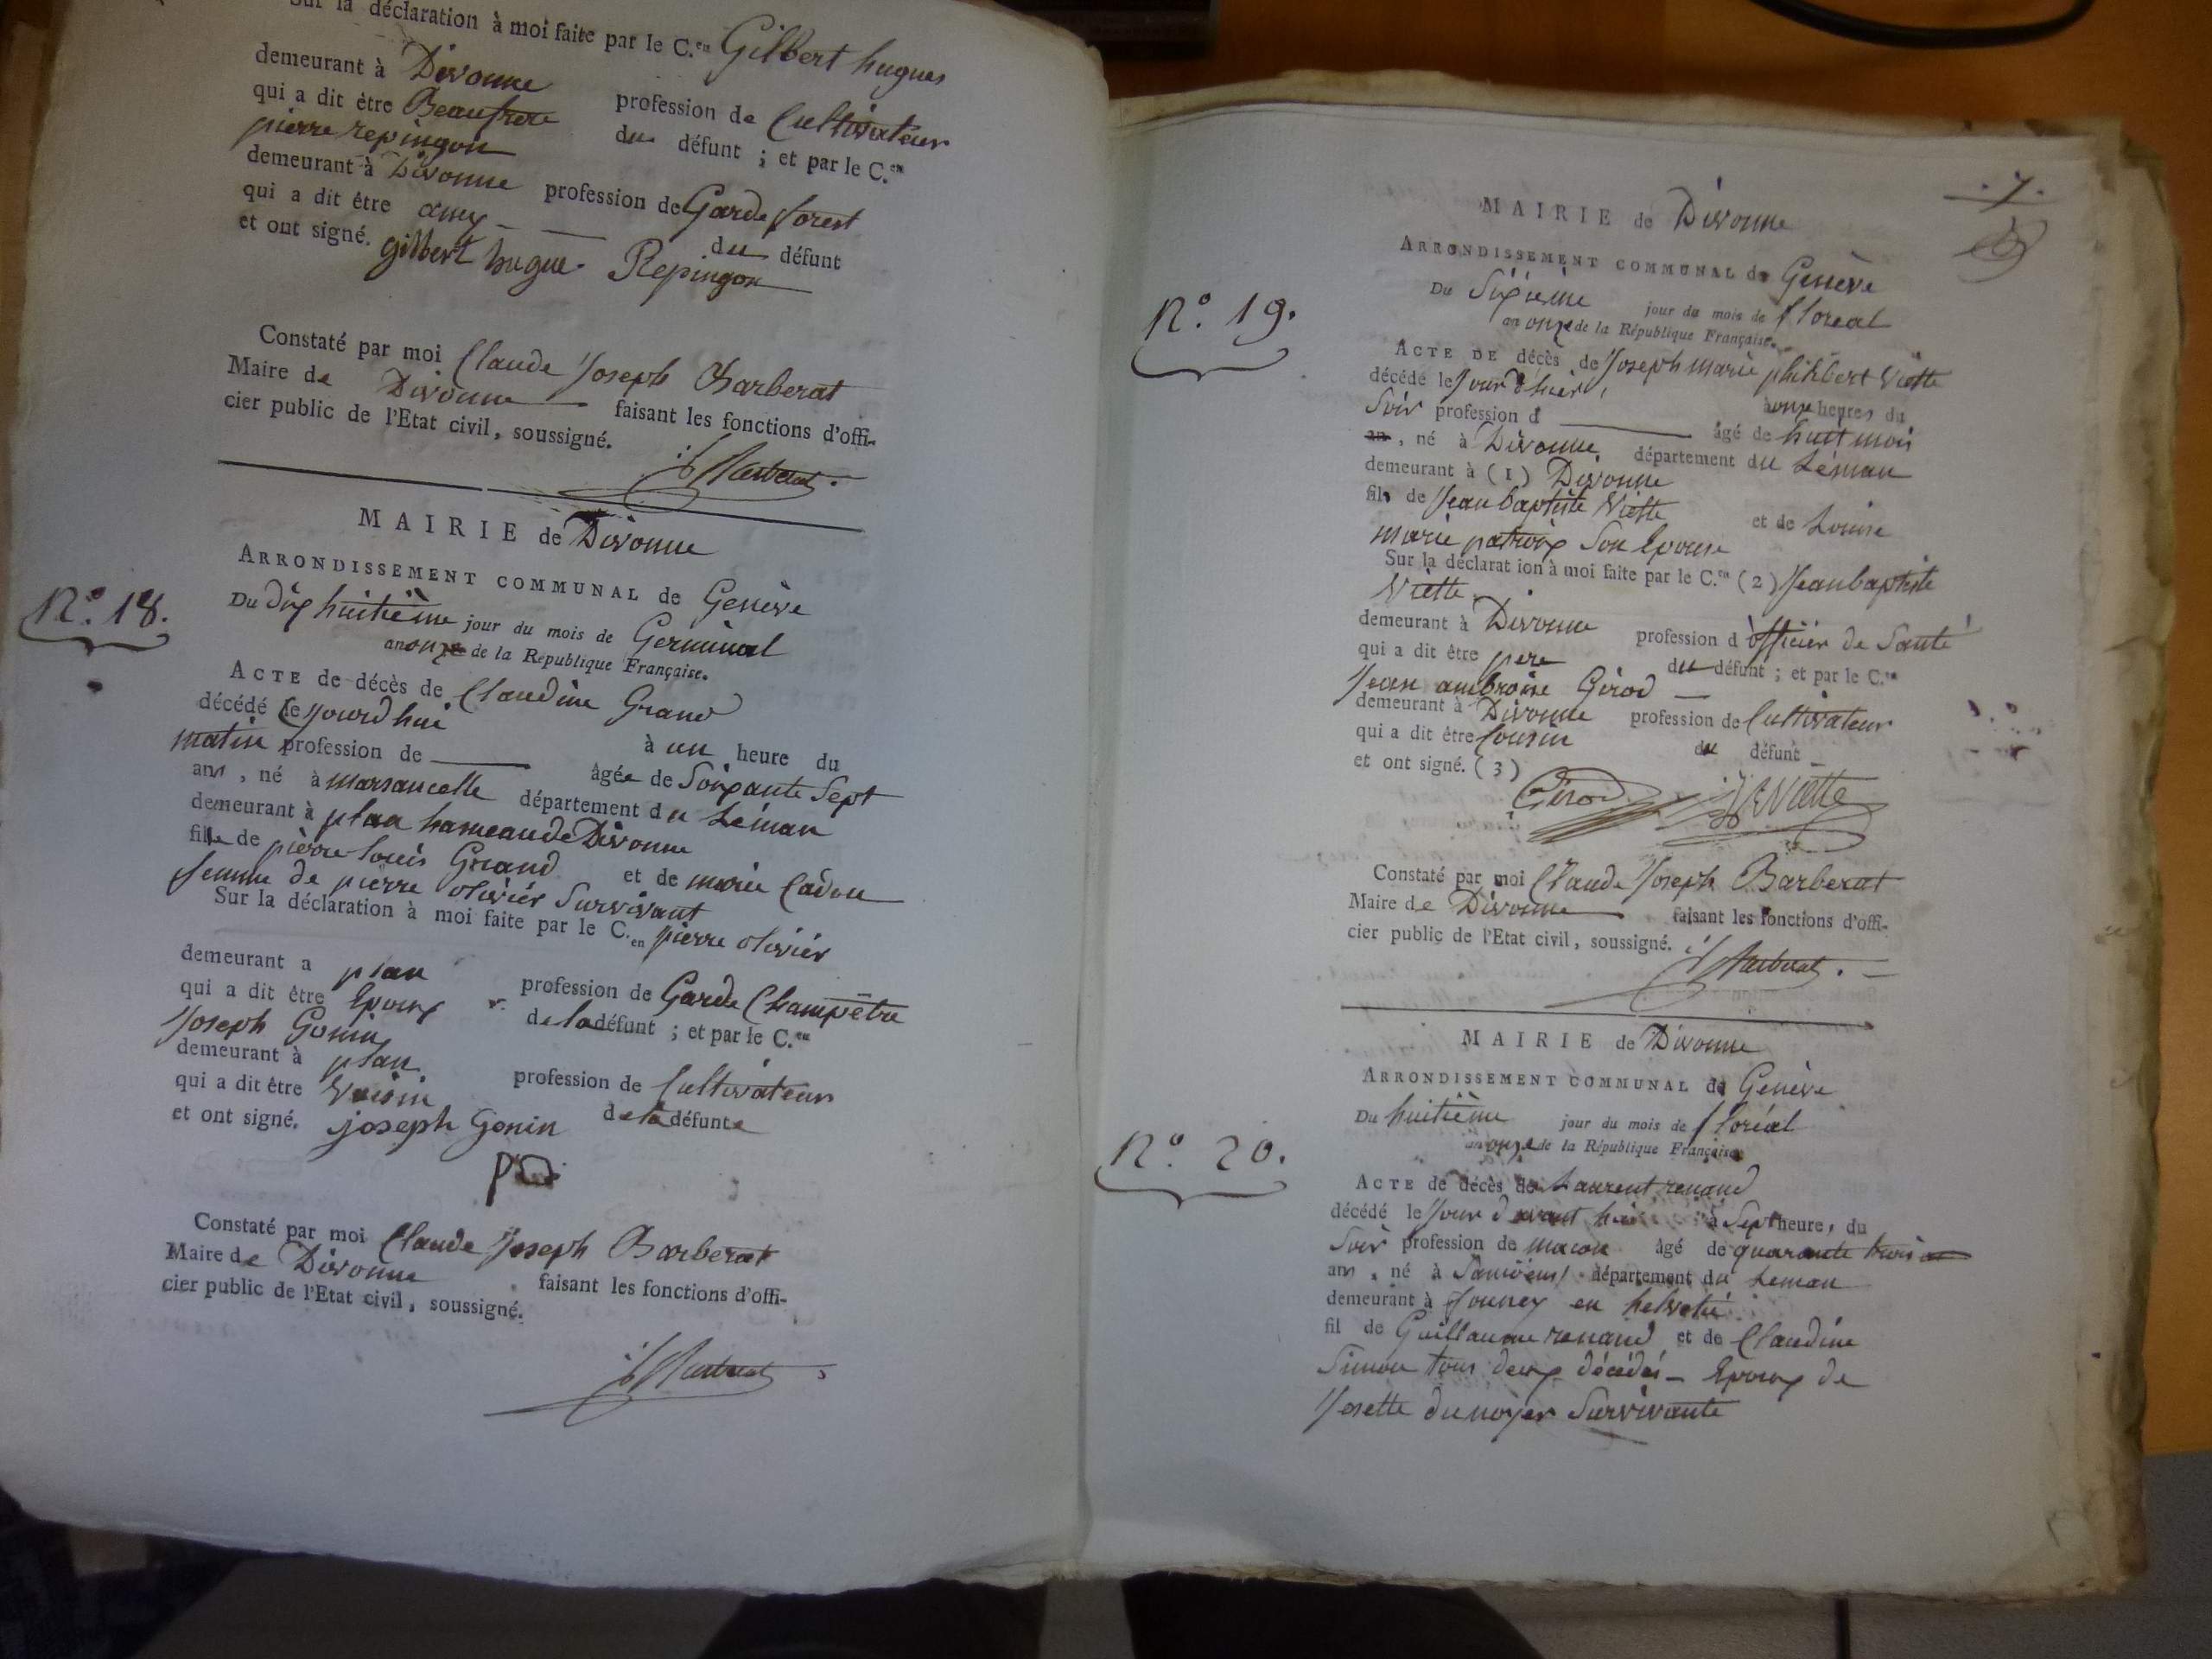 Sur la déclaration à moi faite par le C.en Gilbert hugues
demeurant à Divonne profession de Cultivateur
qui a dit être Beaufrere du défunt ; et par le C.en
pierre repingon
demeurant à Divonne profession de Garde forest
qui a dit être amy du défunt
et ont signé. gilbert hugue Repingon
Constaté par moi Claude Joseph Barberat
Maire de Divonne faisant les fonctions d'offi-
cier public de l'Etat civil, soussigné.
Barberat
MAIRIE de Divonne
ARRONDISSEMENT COMMUNAL de Genève
N.° 18.
Du dix huitième jour du mois de Germinal
an onze de la République Française.
ACTE de décès de Claudine Grand
décédé le jourdhui à un heure du
matin profession de — âgée de Soixante Sept
ans, né à marsancelle département du Léman
demeurant à plan hameau de Divonne
fille de pierre louis Grand et de marie Cadou
femme de pierre olivier Survivant
Sur la déclaration à moi faite par le C.en pierre olivier
demeurant a plan profession de Garde Champêtre
qui a dit être Epoux de la défunt ; et par le C.en
Joseph Gonin
demeurant à plan profession de Cultivateur
qui a dit être Voisin de la défunte
et ont signé. joseph Gonin
Constaté par moi Claude Joseph Barberat
Maire de Divonne faisant les fonctions d'offi-
cier public de l'Etat civil, soussigné.
Barberat
. 7 .
MAIRIE de Divonne
ARRONDISSEMENT COMMUNAL de Genève
N.° 19.
Du Sixième jour du mois de floreal
an onze de la République Française.
ACTE DE décès de Joseph marie philibert Viette
décédé le jour dhier à onze heures du
Soir profession d — âgé de huit mois
an, né à Divonne département du Léman
demeurant à (1) Divonne
fils de Jean baptiste Viette et de Louise
marie patroix Son Epouse
Sur la déclarat ion à moi faite par le C.en (2) Jean baptiste
Viette
demeurant à Divonne profession d'officier de Santé
qui a dit être pere du défunt ; et par le C.en
Jean ambroise Girod
demeurant à Divonne profession de Cultivateur
qui a dit être Cousin du défunt
et ont signé. (3)
Girod Viette
Constaté par moi Claude Joseph Barberat
Maire de Divonne faisant les fonctions d'offi-
cier public de l'Etat civil, soussigné.
Barberat
MAIRIE de Divonne
ARRONDISSEMENT COMMUNAL de Genève
Du huitième jour du mois de floréal
an onze de la République Française
N.° 20.
ACTE de décès de Laurent renand
décédé le jour davant hier à Sept heures du
Soir profession de macon âgé de quarante trois
ans, né à Samoëns département du Leman
demeurant à founex en helvetie
fil de Guillaume renand et de Claudine
Simon tous deux décédés — Epoux de
Josette dunoyer Survivante